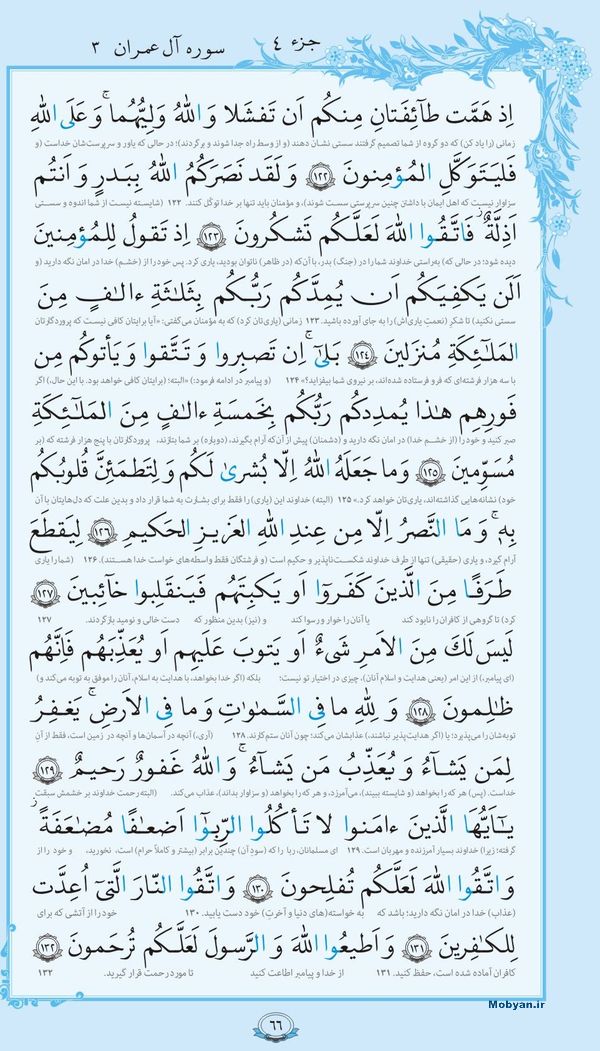 جزء ۴
سوره آل عمران ۳
اِذ هَمَّت طآئِفَتانِ مِنكُم اَن تَفشَلا وَ اللهُ وَلِیُّهُما ۗ وَ عَلَی اللهِ
زمانی (را یاد کن) که دو گروه از شما تصمیم گرفتند سستی نشان دهند (و از وسط راه جدا شوند و برگردند)؛ در حالی که یاور و سرپرست‌شان خداست (و
فَلیَتَوَکَّلِ المُؤمِنونَ ۱۲۲ وَ لَقَد نَصَرَکُمُ اللهُ بِبَدرٍ وَ اَنتُم
سزاوار نیست که اهل ایمان با داشتن چنین سرپرستی سست شوند)، و مؤمنان باید تنها بر خدا توکّل کنند. ۱۲۲ (شایسته نیست از شما اندوه و سستی
اَذِلَّةٌ ۖ فَاتَّقُوا اللهَ لَعَلَّکُم تَشکُرونَ ۱۲۳ اِذ تَقولُ لِلمُؤمِنینَ
دیده شود؛ در حالی که) به‌راستی خداوند شما را در (جنگ) بدر، با آن‌که (در ظاهر) ناتوان بودید، یاری کرد. پس خود را از (خشم) خدا در امان نگه دارید (و
اَلَن یَکفِیَکُم اَن یُمِدَّکُم رَبُّکُم بِثَلٰثَةِ ءالٰفٍ مِنَ
سستی نکنید) تا شکر (نعمت یاری‌اش) را به جای آورده باشید. ۱۲۳ زمانی (یاری‌تان کرد) که به مؤمنان می‌گفتی: «آیا برایتان کافی نیست که پروردگارتان
المَلٰئِکَةِ مُنزَلینَ ۱۲۴ بَلیٰٓ ۚ اِن تَصبِروا وَ تَتَّقوا وَ یَأتوکُم مِن
با سه هزار فرشته‌ای که فرو فرستاده شده‌اند، بر نیروی شما بیفزاید؟» ۱۲۴ (و پیامبر در ادامه فرمود:) «البته؛ (برایتان کافی خواهد بود. با این حال،) اگر
فَورِهِم هٰذا یُمدِدکُم رَبُّکُم بِخَمسَةِ ءالٰفٍ مِنَ المَلٰئِکَةِ
صبر کنید و خود را (از خشم خدا) در امان نگه دارید و (دشمنان) پیش از آن‌که آرام بگیرند، (دوباره) بر شما بتازند، پروردگارتان با پنج هزار فرشته که (بر
مُسَوِّمینَ ۱۲۵ وَ ما جَعَلَهُ اللهُ اِلّا بُشریٰ لَکُم وَ لِتَطمَئِنَّ قُلوبُکُم
خود) نشانه‌هایی گذاشته‌اند، یاری‌تان خواهد کرد.» ۱۲۵ (البته) خداوند این (یاری) را فقط برای بشارت به شما قرار داد و بدین علت که دل‌هایتان با آن
بِهٖ ۗ وَ مَا النَّصرُ اِلّا مِن عِندِ اللهِ العَزیزِ الحَکیمِ ۱۲۶ لِیَقطَعَ
آرام گیرد، و یاری (حقیقی) تنها از طرف خداوند شکست‌ناپذیر و حکیم است (و فرشتگان فقط واسطه‌های خواست خدا هستند). ۱۲۶ (شما را یاری
طَرَفًا مِنَ الَّذینَ کَفَروٓا اَو یَکبِتَهُم فَیَنقَلِبوا خآئِبینَ ۱۲۷
کرد) تا گروهی از کافران را نابود کند یا آنان را خوار و رسوا کند (و نیز) بدین منظور که دست خالی و نومید بازگردند. ۱۲۷
لَیسَ لَکَ مِنَ الاَمرِ شَیءٌ اَو یَتوبَ عَلَیهِم اَو یُعَذِّبَهُم فَاِنَّهُم
(ای پیامبر،) از این امر (یعنی هدایت و اسلام آنان)، چیزی در اختیار تو نیست؛ بلکه (اگر خدا بخواهد، با هدایت به اسلام، آنان را موفق به توبه می‌کند و)
ظٰلِمونَ ۱۲۸ وَ لِلّٰهِ ما فِی السَّمٰوٰتِ وَ ما فِی الاَرضِ ۚ یَغفِرُ
توبه‌شان را می‌پذیرد؛ یا (اگر هدایت‌پذیر نباشند،) عذابشان می‌کند؛ چون آنان ستم‌کارند. ۱۲۸ (آری،) آنچه در آسمان‌ها و آنچه در زمین است، فقط از آنِ
لِمَن یَشآءُ وَ یُعَذِّبُ مَن یَشآءُ ۚ وَ اللهُ غَفورٌ رَحیمٌ ۱۲۹
خداست. (پس) هر که را بخواهد (و شایسته ببیند)، می‌آمرزد، و هر که را بخواهد (و سزاوار بداند)، عذاب می‌کند. (البته رحمت خداوند بر خشمش سبقت
یٰٓاَیُّهَا الَّذینَ ءامَنوا لا تَأکُلُوا الرِّبوٰٓا اَضعٰفًا مُضٰعَفَةً
گرفته؛ زیرا) خداوند بسیار آمرزنده و مهربان است. ۱۲۹ ای مسلمانان، ربا را که (سود آن) چندین برابر (بیشتر و کاملاً حرام) است، نخورید، و خود را از
وَ اتَّقُوا اللهَ لَعَلَّکُم تُفلِحونَ ۱۳۰ وَ اتَّقُوا النّارَ الَّتیٓ اُعِدَّت
(عذاب) خدا در امان نگه دارید؛ باشد که به خواسته(های دنیا و آخرت) خود دست یابید. ۱۳۰ خود را از آتشی که برای
لِلکٰفِرینَ ۱۳۱ وَ اَطیعُوا اللهَ وَ الرَّسولَ لَعَلَّکُم تُرحَمونَ ۱۳۲
کافران آماده شده است، حفظ کنید. ۱۳۱ از خدا و پیامبر اطاعت کنید تا مورد رحمت قرار گیرید. ۱۳۲
Mobyan.ir
۶۶